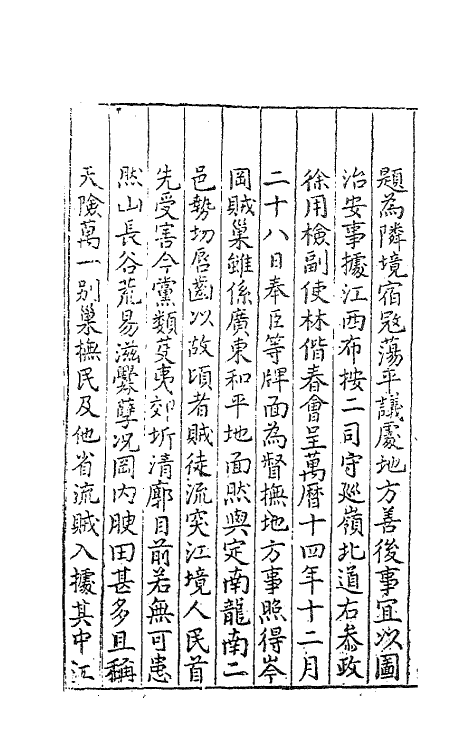 題為隣境宿冦蕩平議處地方善後事宜以圖
治安事據江西布按二司守廵嶺北道右叅政
徐用檢副使林偕春會呈萬曆十四年十二月
二十八日奉臣等牌面為督撫地方事照得岑
岡賊巢雖係廣東和平地面然與定南龍南二
邑勢切唇齒以故頃者賊徒流突江境人民首
先受害今黨類芟夷郊圻清廓目前若無可患
然山長谷荒易滋釁孽况岡内腴田甚多且稱
天險萬一别巢撫民及他省流賊入據其中江